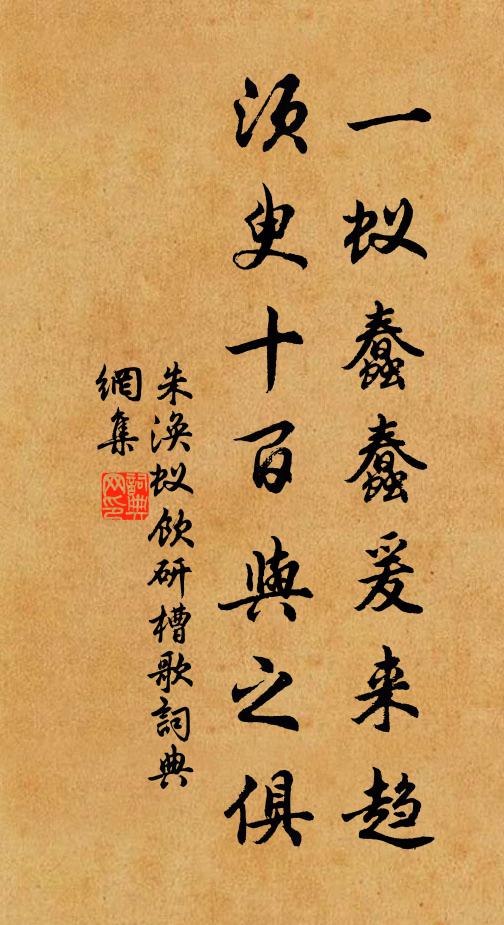 一蚁蠢蠢爰来趋
须臾十百與之俱
朱涣蚁饮研槽歌詞典
網集
詞典网印